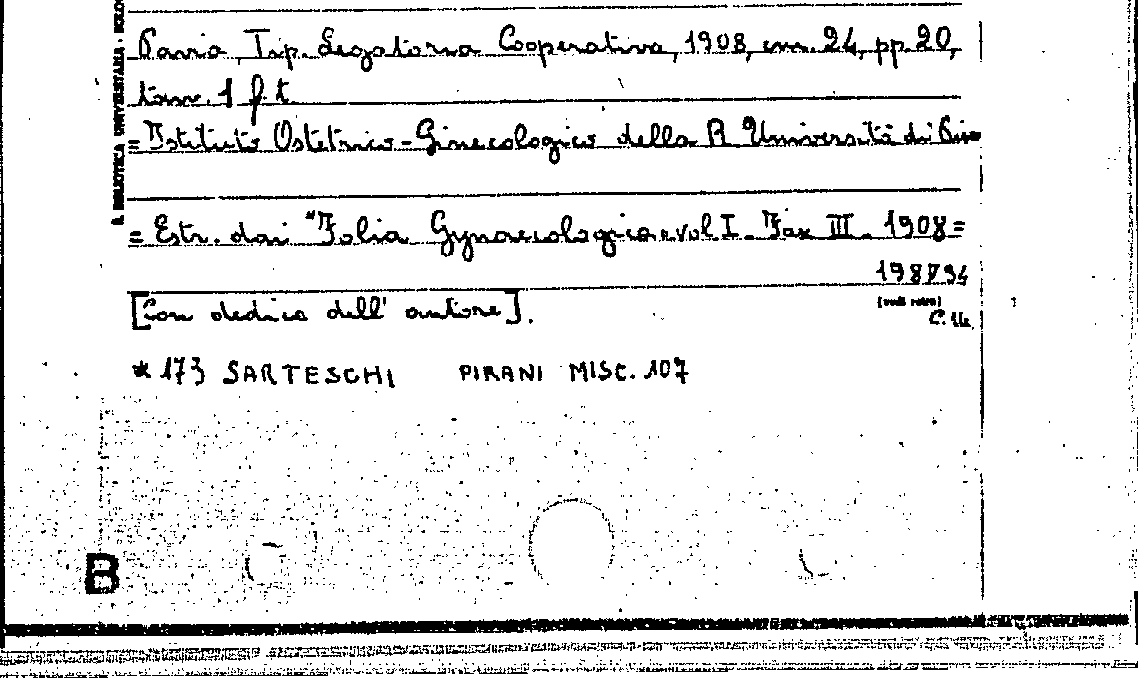 Pavia, Tip. Legatoria Cooperativa, 1908, cm. 24, pp. 20,
tav. 1 f. t.
= Istituto Ostetrico-Ginecologico della R. Università di
= Estr. dai "Folia Gynaecologica" vol I. Fax III. 1908 =
198794
[Con dedica dell' autore].
(vedi retro)
C. 14.
* 173 SARTESCHI PIRANI MISC. 107
B
R. BIBLIOTECA UNIVERSITARIA